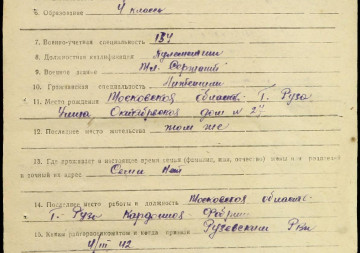 6. Образование 4 класса
7. Военно-учетная специальность 134
8. Должностная квалификация Пулеметчик
9. Военное звание Мл. Сержант
10. Гражданская специальность
11. Место рождения Московская область г. Руза
Улица Октябрская дом № 24
12. Последнее место жительства там же
13. Где проживает в настоящее время семья (фамилия, имя, отчество) жены или родителей
и точный их адрес Семьи нет
14. Последнее место работы и должность Московская область
г. Руза Картонная Фабрика
15. Каким райгорвоенкоматом и когда призван Рузовским РВК
4/III 42